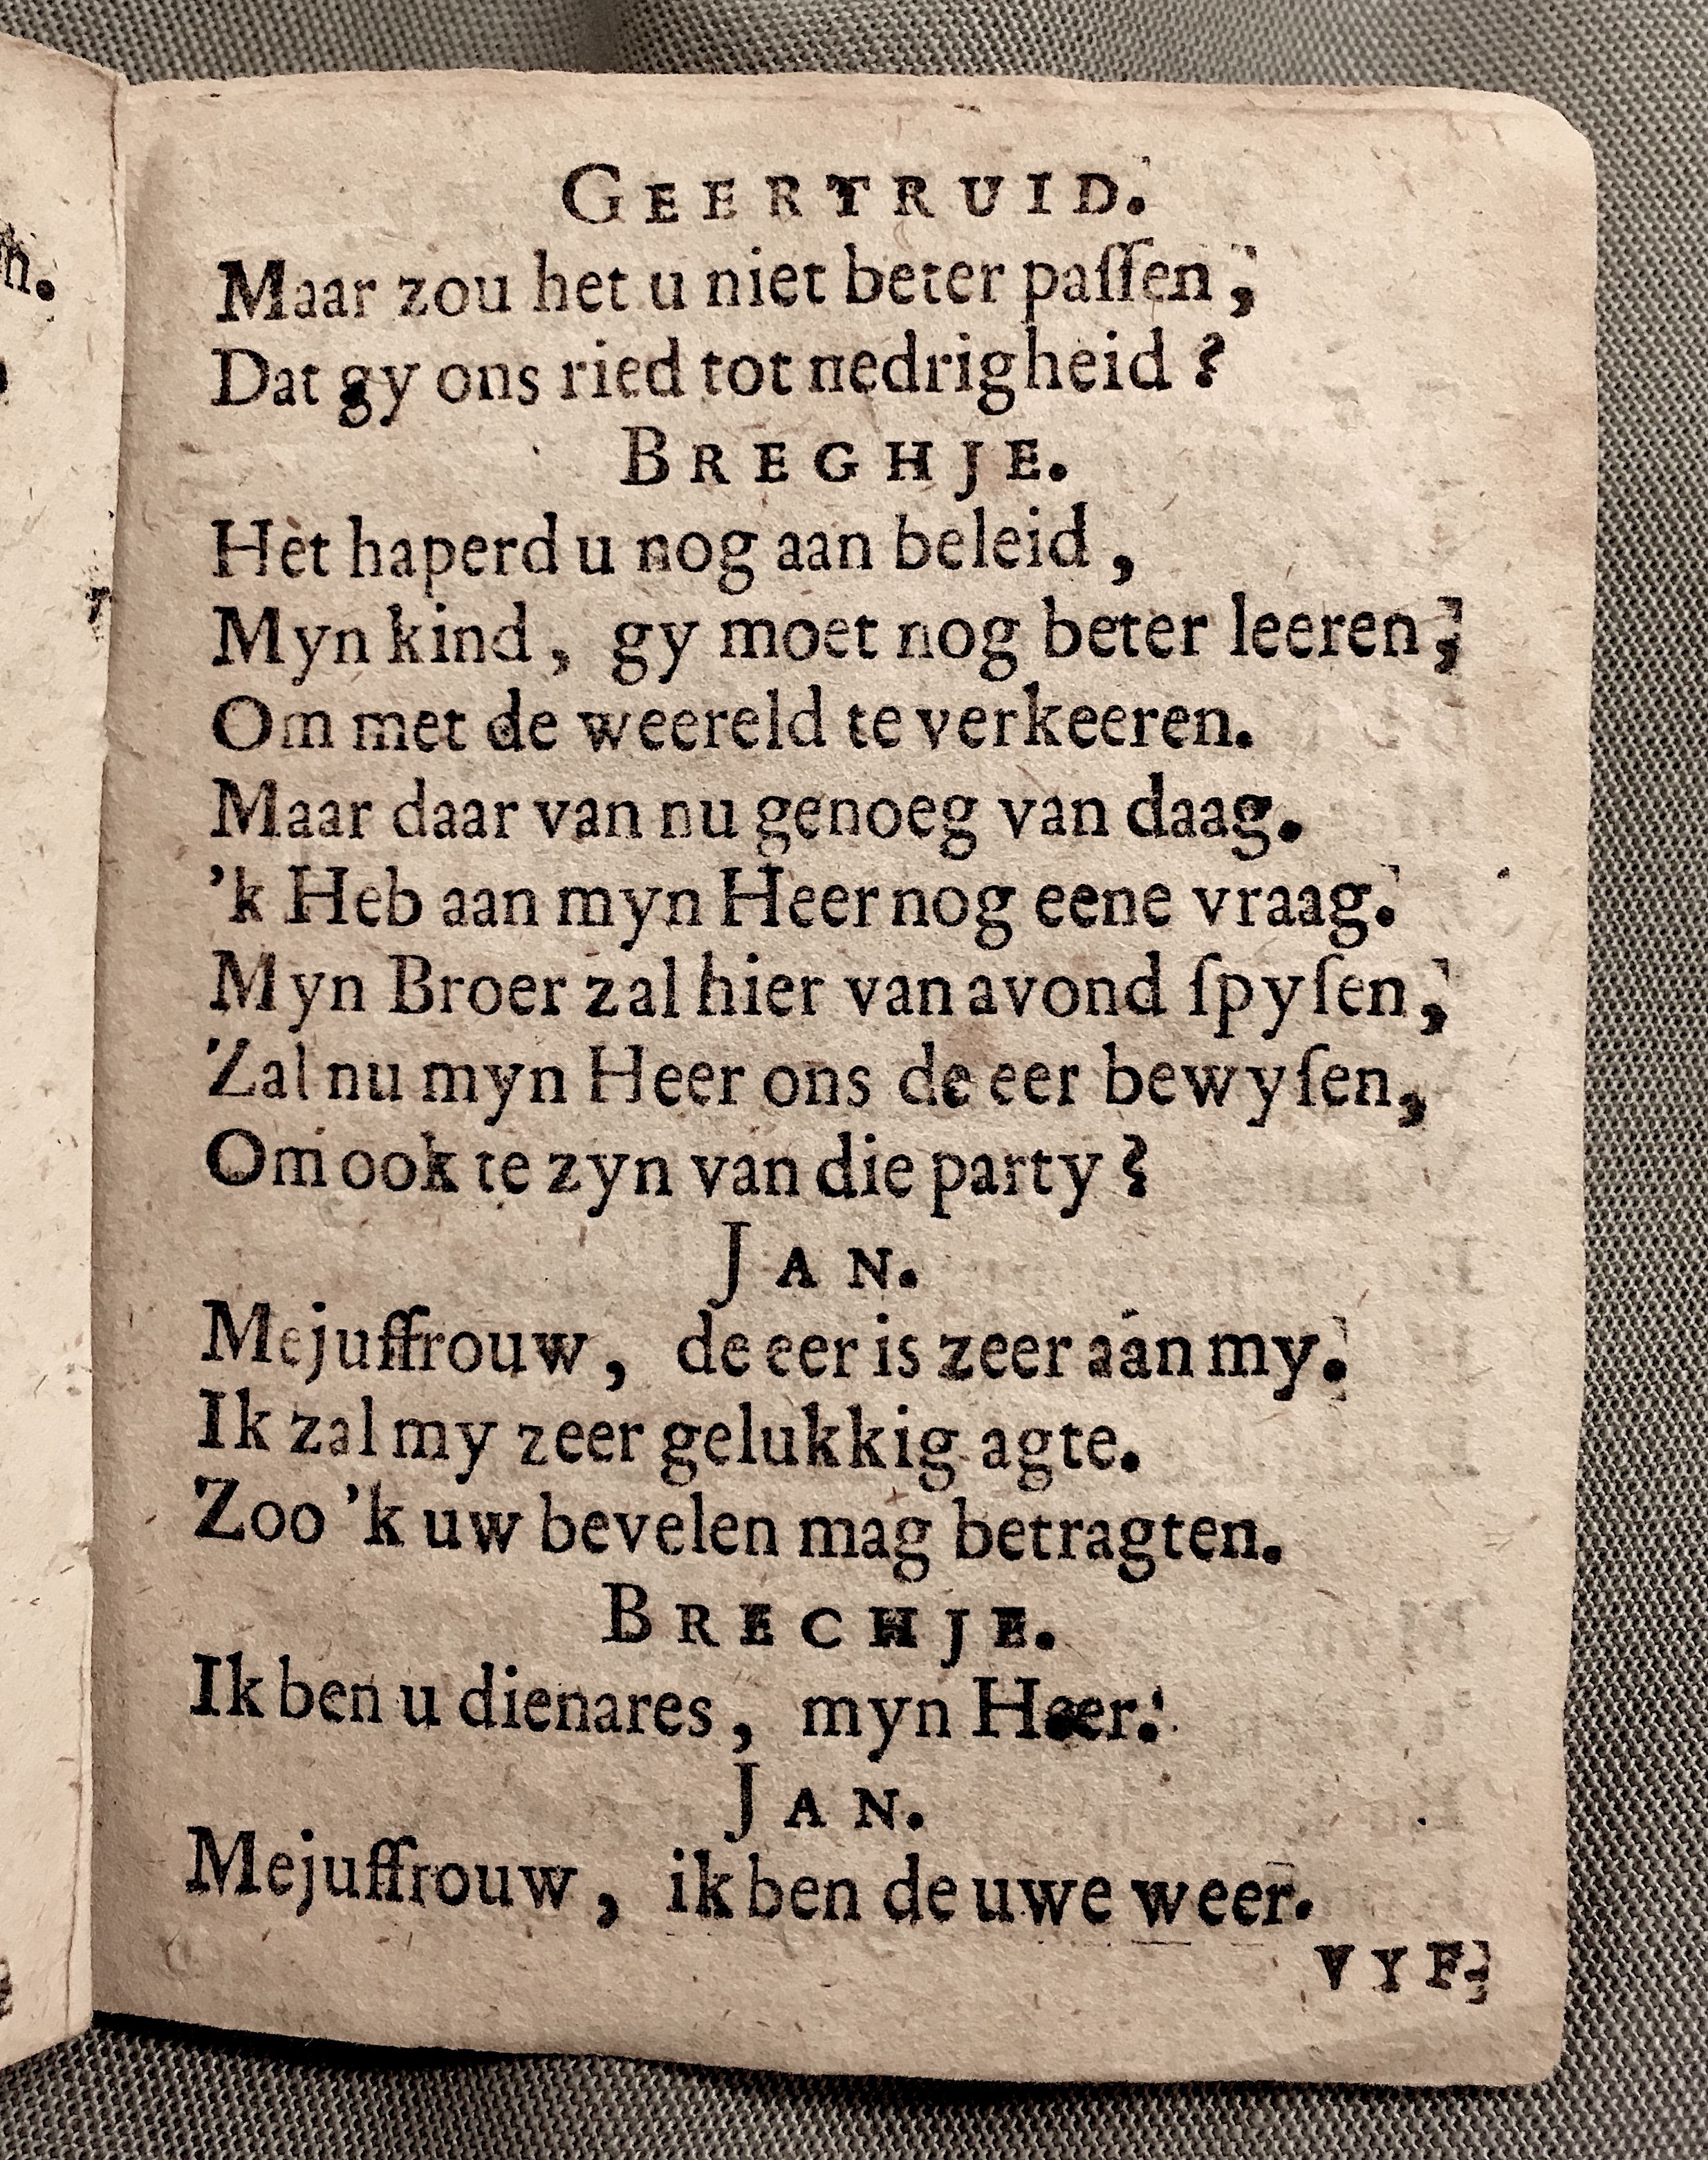 GEERTRUID.
Maar zou het u niet beter paſſen,
Dat gy ons ried tot nedrigheid?
BREGHJE.
Het haperd u nog aan beleid,
Myn kind, gy moet nog beter leeren,
Om met de weereld te verkeeren.
Maar daar van nu genoeg van daag.
'k Heb aan myn Heer nog eene vraag.
Myn Broer zal hier van avond ſpyſen,
Zal nu myn Heer ons de eer bewyſen,
Om ook te zyn van die party?
JAN.
Mejuffrouw, de eer is zeer aan my.
Ik zal my zeer gelukkig agte.
Zoo 'k uw bevelen mag betragten.
BRECHJE.
Ik ben u dienares, myn Heer.
JAN.
Mejuffrouw, ik ben de uwe weer.
VYF-